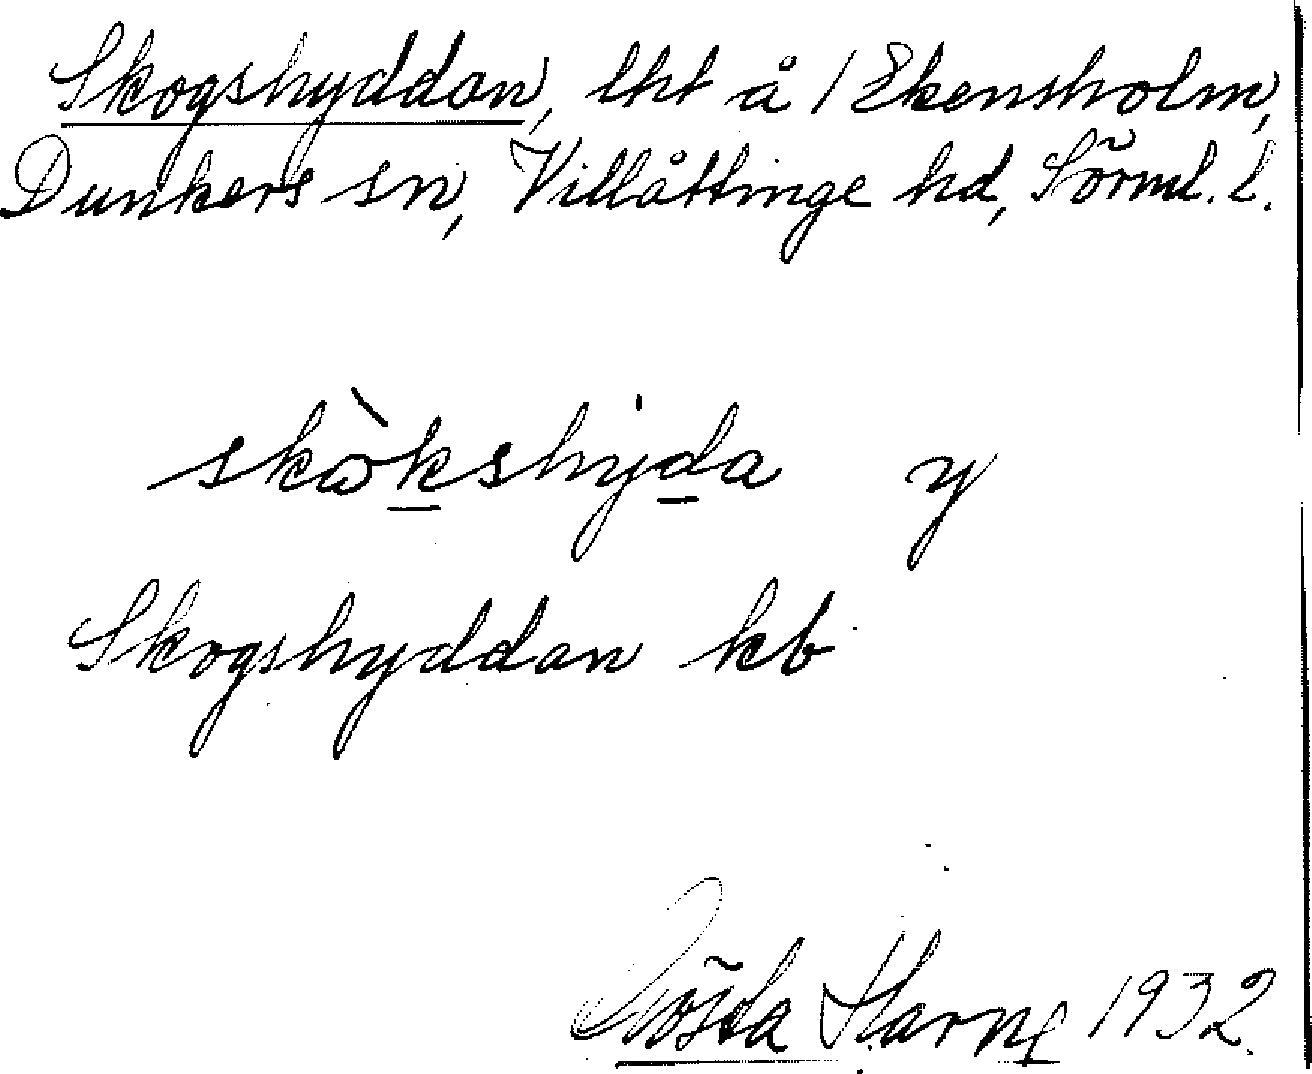 Skogshyddan, lht å / Ekensholm,
Dunkers sn, Villåttinge hd, Sörml. l.
skὼkshyda y
Skogshyddan kb
Gösta Harne 1932